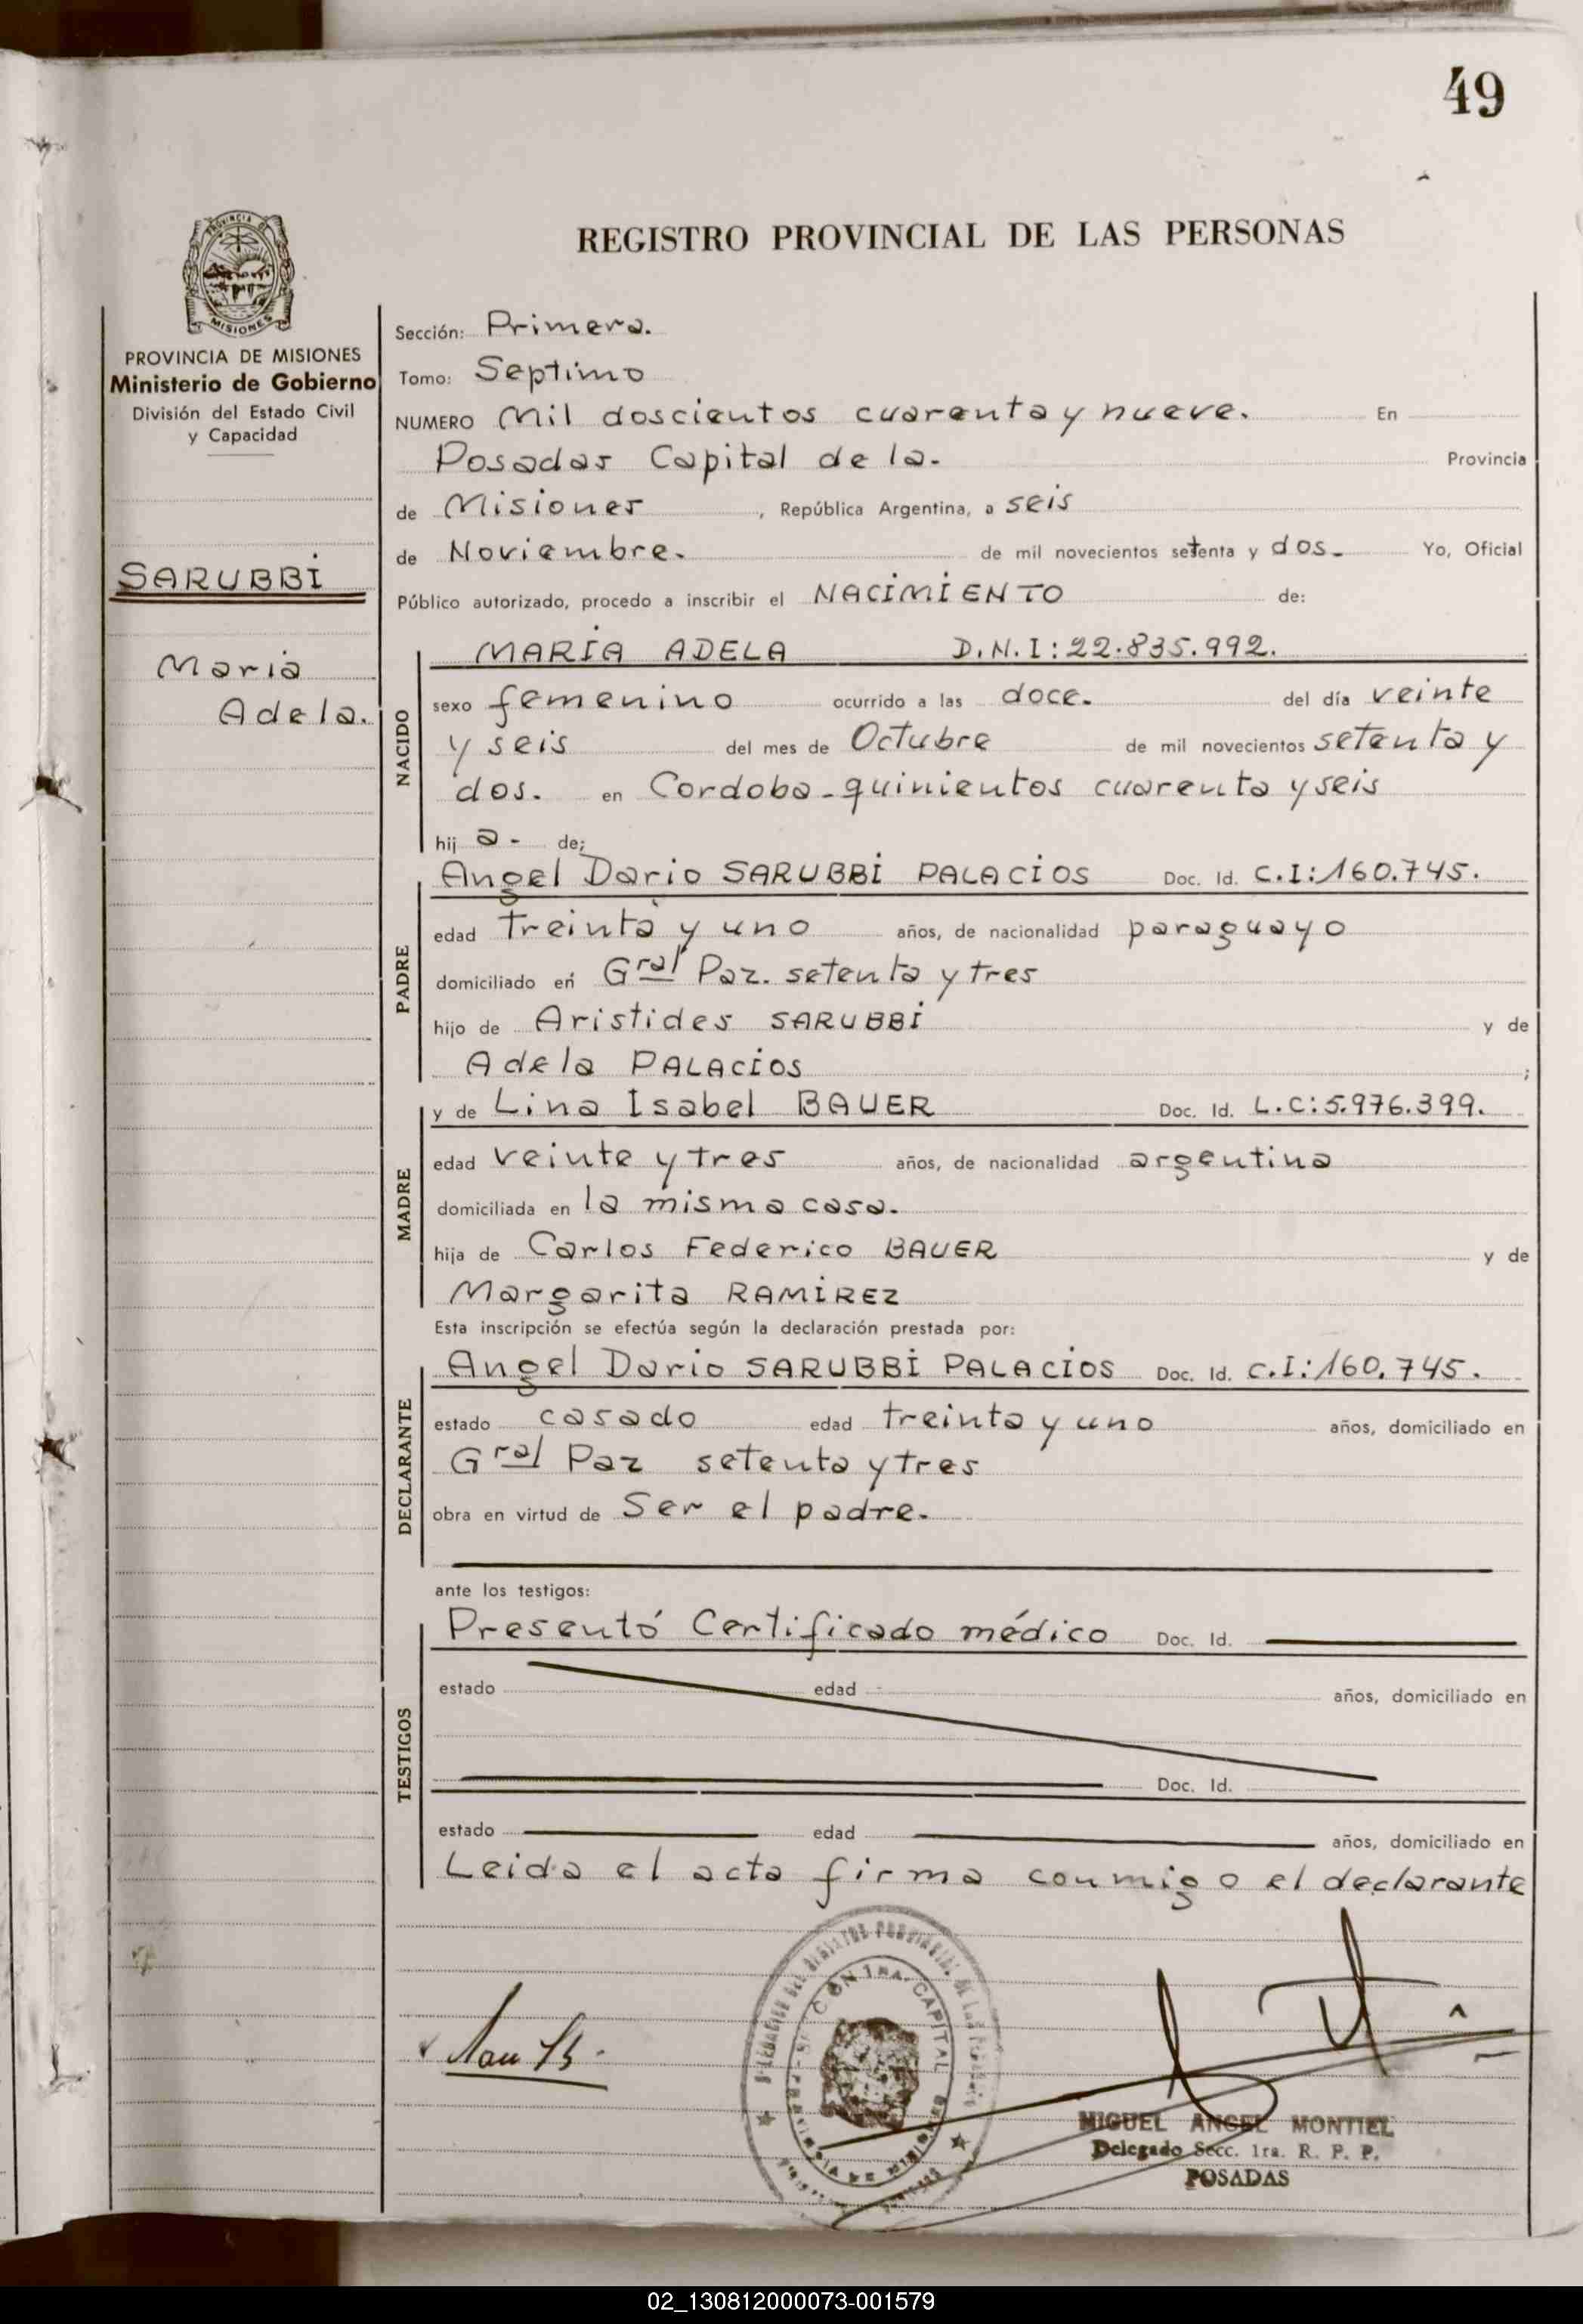 49
REGISTRO PROVINCIAL DE LAS PERSONAS
PROVINCIA DE
MISIONES
PROVINCIA DE MISIONES
Ministerio de Gobierno
División del Estado Civil
y Capacidad
SARUBBI
Maria
Adela.
Sección: Primera.
Tomo: Septimo
NUMERO Mil doscientos cuarenta y nueve. En
Posadas Capital de la. Provincia
de Misiones, República Argentina, a seis
de Noviembre. de mil novecientos setenta y dos. Yo, Oficial
Público autorizado, procedo a inscribir el NACIMIENTO de:
NACIDO
MARIA ADELA D.N.I: 22.835.992.
sexo femenino ocurrido a las doce. del día veinte
y seis del mes de Octubre de mil novecientos setenta y
dos. en Cordoba - quinientos cuarenta y seis
hij a - de;
PADRE
Angel Dario SARUBBI PALACIOS Doc. Id. C.I: 160.745.
edad treinta y uno años, de nacionalidad paraguayo
domiciliado en Gral Paz. setenta y tres
hijo de Aristides SARUBBI y de
Adela PALACIOS ;
MADRE
y de Lina Isabel BAUER Doc. Id. L.C: 5.976.399.
edad veinte y tres años, de nacionalidad argentina
domiciliada en la misma casa.
hija de Carlos Federico BAUER y de
Margarita RAMIREZ
Esta inscripción se efectúa según la declaración prestada por:
DECLARANTE
Angel Dario SARUBBI PALACIOS Doc. Id. C.I: 160.745.
estado casado edad treinta y uno años, domiciliado en
Gral Paz setenta y tres
obra en virtud de Ser el padre.
ante los testigos:
TESTIGOS
Presentó Certificado médico Doc. Id.
estado edad años, domiciliado en
Doc. Id.
estado edad años, domiciliado en
Leida el acta firma conmigo el declarante
MIGUEL ANGEL MONTIEL
Delegado Secc. 1ra. R. P. P.
POSADAS
02_130812000073-001579